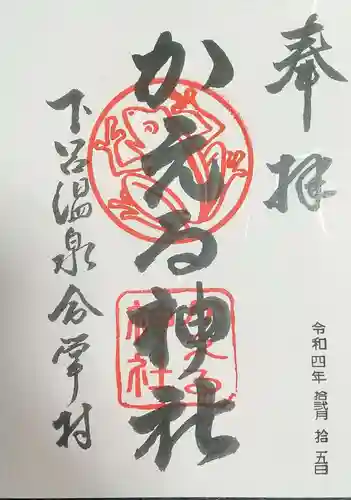 奉拝
令和四年 拾弐月 拾五日
かえる神社
かえる
神社
下呂温泉合掌村